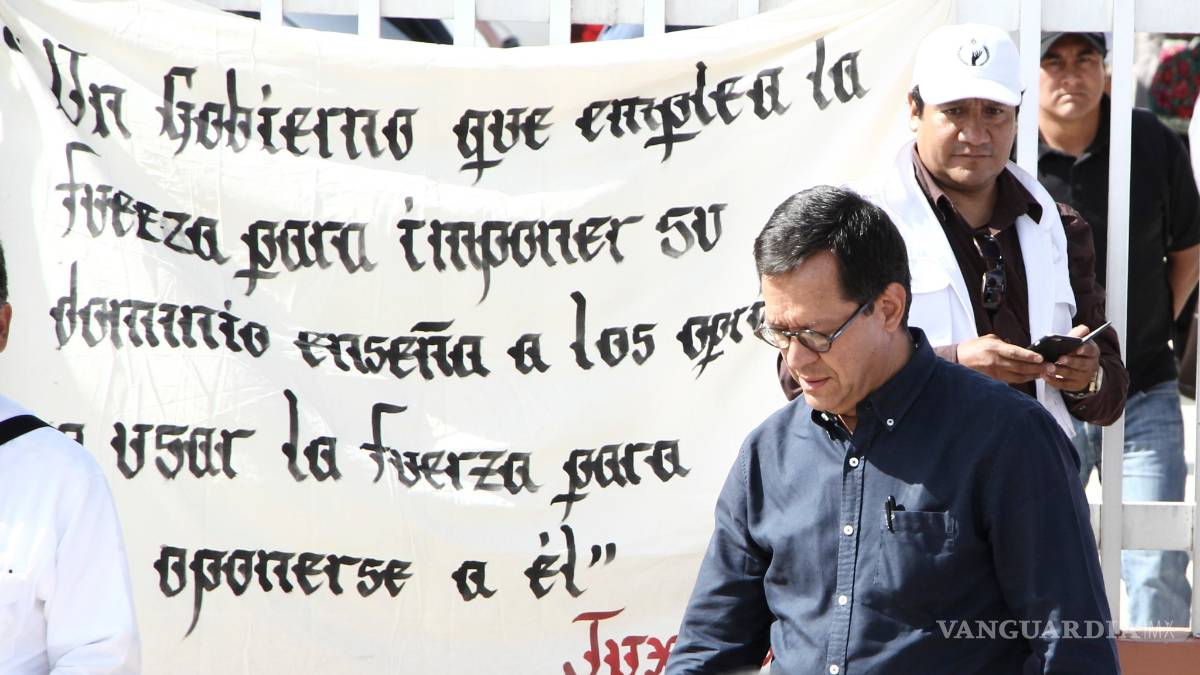 "Un Gobierno que emplea la
fuerza para imponer su
dominio enseña a los
usar la fuerza para
oponerse a él"
VANGUARDIA MX